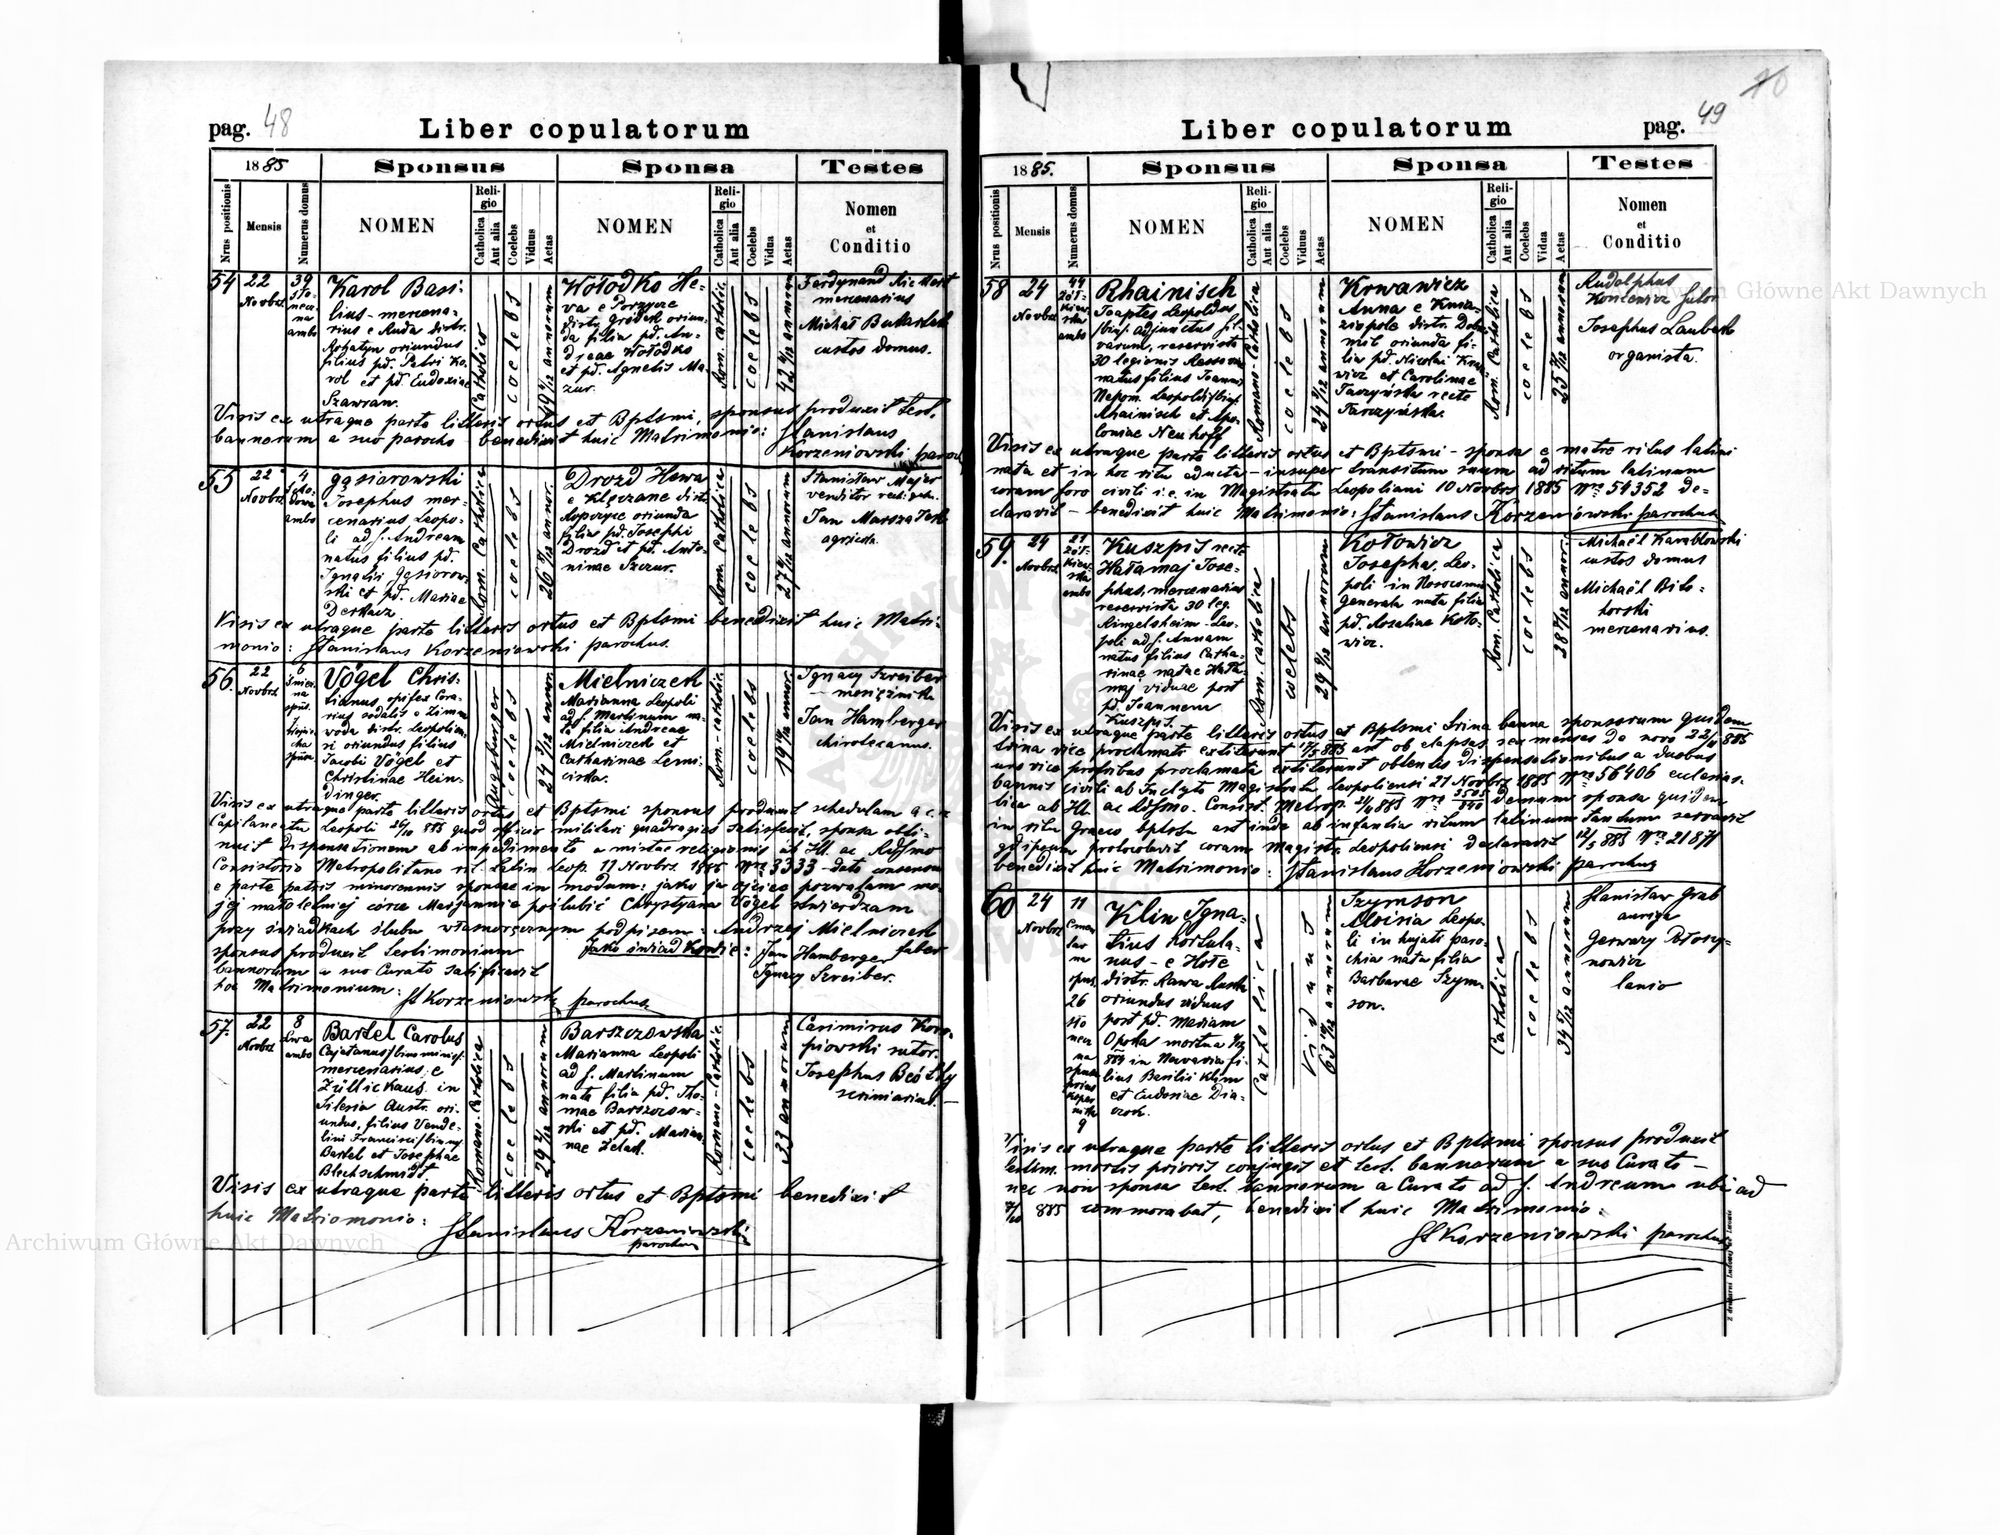 pag. 48
Liber copulatorum
1885
Sponsus
Sponsa
Testes
Nrus positionis
Mensis
Numerus domus
NOMEN
Religio
Catholica
Aut alia
Coelebs
Viduus
Aetas
NOMEN
Religio
Catholica
Aut alia
Coelebs
Vidua
Aetas
Nomen
et
Conditio
54
22
Novbri
39
ambo
Karol Basi-
lius - mercena-
rius e Ruda distr.
Rohatyn oriundus
filius pd. Petri Ka-
rol et pd. Eudoxiae
Szawran.
Catholica
coelebs
annorum
Kołodko He-
va e Porzycze
distr. Gródek oriun-
da filia pd. An-
dreae Kołodko
et pd. Agnetis Ma-
zur.
Rom. catholic.
coelebs
annorum
Ferdynand
mercenarius
Michał
custos domus.
Visis ex utraque parte litteris ortus et Bptsmi, sponsus produxit test.
bannorum a suo parocho benedixit huic Matrimonio: Stanislaus
Korzeniowski paroch
55
22
Novbri
4
ambo
Gąsiorowski
Josephus mer-
cenarius Leopo-
li ad S. Andream
natus filius pd.
Ignatii Gąsiorow-
ski et pd. Mariae
Derkacz
Rom. Catholica
coelebs
annor.
Drozd Hewa
e Klęczane distr.
Ropczyce oriunda
filia pd. Josephi
Drozd et pd. Anto-
ninae Szczur.
Rom. Catholica
coelebs
annorum
Stanisław Majer
venditor
Jan Marszałek
agricola.
Visis ex utraque parte litteris ortus et Bptsmi benedixit huic Matri-
monio: Stanislaus Korzeniowski parochus.
56.
22
Novbri
6
Vögel Chris-
tianus, opifex Cora-
rius sodalis e Zimna
woda distr. Leopolien-
si oriundus filius
Jacobi Vögel et
Christinae Hein-
dinger.
Augsburger
coelebs
annor.
Mielniczek
Marianna Leopoli
ad S. Martinum na-
ta filia Andreae
Mielniczek et
Catharinae Lewi-
cka.
Rom-catholic.
coelebs
annor.
Ignacy Szreiber
- mosiężnik
Jan Hamberger
chirotecarius.
Visis ex utraque parte litteris ortus et Bptsmi sponsus produxit schedulam a c.r.
Capitaneatu Leopoli 26/10 885 quod officio militari quadragies satisfecit, sponsa obti-
nuit Dispensationem ab impedimento a mixtae religionis ab Ill. ac Rdssmo
Consistorio Metropolitano rit. Latin Leop. 11 Novbrs 1885 Nro 3333 - dato consensu
e parte patris minorennis sponsae in modum: jako ja ojciec pozwalam mo-
jej małoletniej córce Marjannie poślubić Chrystjana Vögel stwierdzam
przy świadkach ślubu własnoręcznym podpisem: Andrzej Mielniczek
sponsus produxit testimonium Jako świadkowie: Jan Hamberger faber
bannorum a suo Curato satisfecit Ignacy Szreiber.
hoc Matrimonium: St Korzeniowski parochus.
57.
22
Novbri
8
ambo
Bartel Carolus
Cajetanus
mercenarius e
Züllickaus in
Silesia Austr. ori-
undus, filius Vende-
lini Francisci
Bartel et Josephae
Blechschmidt
Romano-Catholica
coelebs
annorum
Barszczowska
Marianna Leopoli
ad S. Martinum
nata filia pd. Tho-
mae Barszczow-
ski et pd. Marian-
nae
Romano-Catholic.
coelebs
33 annorum
Casimirus Karo-
piowski sutor.
Josephus
scriniarius.
Visis ex utraque parte litteris ortus et Bptsmi benedixit
huic Matriomonio:
Stanislaus Korzeniowski
parochus
Liber copulatorum
pag. 49
1885.
Sponsus
Sponsa
Testes
Nrus positionis
Mensis
Numerus domus
NOMEN
Religio
Catholica
Aut alia
Coelebs
Viduus
Aetas
NOMEN
Religio
Catholica
Aut alia
Coelebs
Vidua
Aetas
Nomen
et
Conditio
58
24
Novbri
44
ambo
Rhainisch
Leopoldus
adjunctus fil-
varum, reservista
30 legionis
natus filius Joannis
Nepom. Leopoldi
Rhainisch et Apo-
loniae Neuhoff
Romano-Catholica
coelebs
annorum
Krwawicz
Anna e Knia-
ziopole distr. Dobro-
mil oriunda fi-
lia pd. Nicolai Krwa-
wicz et Carolinae
Taczyńska recte
Tarczyńska.
Rom. Catholica
coelebs
annorum
Rudolphus
Koncewicz sutor
Josephus Laubach
organista.
Visis ex utraque parte litteris ortus et Bptsmi - sponsa e matre ritus latini
nata et in hoc ritu educta - insuper transitum suum ad ritum latinum
coram foro civili i.e. in Magistratu Leopoliani 10 Novbrs 1885 Nro 54352 de-
claravit - benedixit huic Matrimonio: Stanislaus Korzeniowski parochus
59.
24
Novbri
21
ambo
Kuszpis recte
Hałamaj Jose-
phus, mercenarius
reservista 30 leg.
Ringelsheim - Leo-
poli ad S. Annam
natus filius Catha-
rinae natae Hała-
maj viduae post
pd. Joannem
Kuszpis.
Rom. Catholica
coelebs
annorum
Kotowicz
Josepha, Leo-
poli in Nosocomio
Generali nata filia
pd. Rosaliae Koto-
wicz.
Rom. Catholica
coelebs
annor.
Michaël Karabtowski
custos domus
Michaël Bito-
horski
mercenarius.
Visis ex utraque parte litteris ortus et Bptsmi trina banna sponsorum quidem
trina vice proclamata extiterunt 17/5 885 ast ob elapsos sex menses de novo 22/11 885
una vice pro tribus proclamata extiterunt obtentis dispensationibus a duobus
bannis civili ab Inclyto Magistratu Leopoliensi 21 Novbrs 1885 Nro 56406 ecclesias-
tica ab Ill. ac Rdssmo. Consist. Metrop. 21/11 885 Nro demum sponsa quidem
in ritu Graeco bptsta ast inde ab infantia ritum latinum tantum servavit
id ipsum protocolavit coram Magistr. Leopoliensi declaravit 12/5 885 Nro 21871
benedixit huic Matrimonio: Stanislaus Korzeniowski parochus
60
24
Novbri
11
26
9
Klim Igna-
tius hortula-
nus - e Hołe
distr. Rawa Ruska
oriundus viduus
post pd. Mariam
Opoka mortua
884 in Navaria fi-
lius Basilii Klim
et Eudoxiae Dia-
czok.
Catholica
Viduus
annorum
Szymson
Aloisia Leopo-
li in hujati paro-
chia nata filia
Barbarae Szym-
son.
Catholica
coelebs
annorum
Stanisław Grab
auriga
Gerwazy Potosy-
nowicz
lanio
Visis ex utraque parte litteris ortus et Bptsmi sponsus produxit
testim. mortis prioris conjugis et test. bannorum a suo Curato -
nec non sponsa test. bannorum a Curato ad S. Andream ubi ad
7/10 885 commorabat, benedixit huic Matrimonio:
St Korzeniowski parochus
Z drukarni Ludowej we Lwowie
Archiwum Główne Akt Dawnych
Archiwum Główne Akt Dawnych